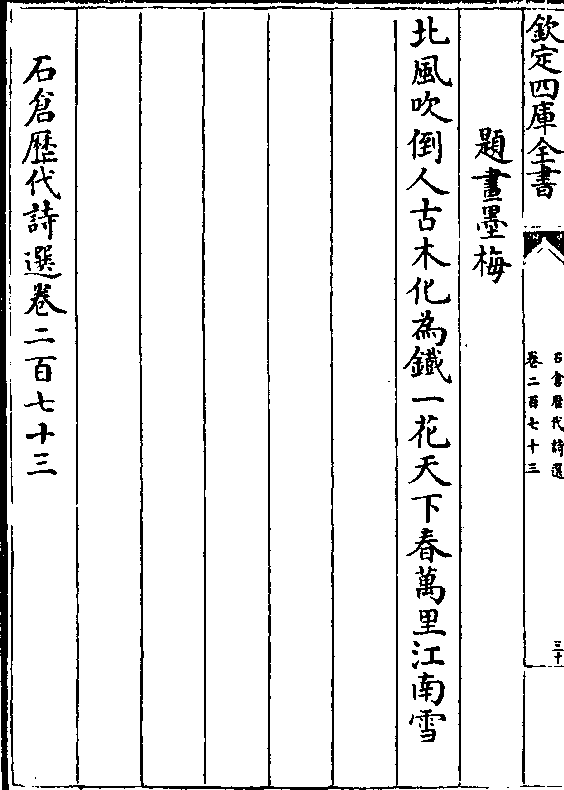 欽定四庫全書
石倉歷代詩選
卷二百七十三
三十
題畫墨梅
北風吹倒人古木化為鐵一花天下春萬里江南雪
石倉歷代詩選卷二百七十三